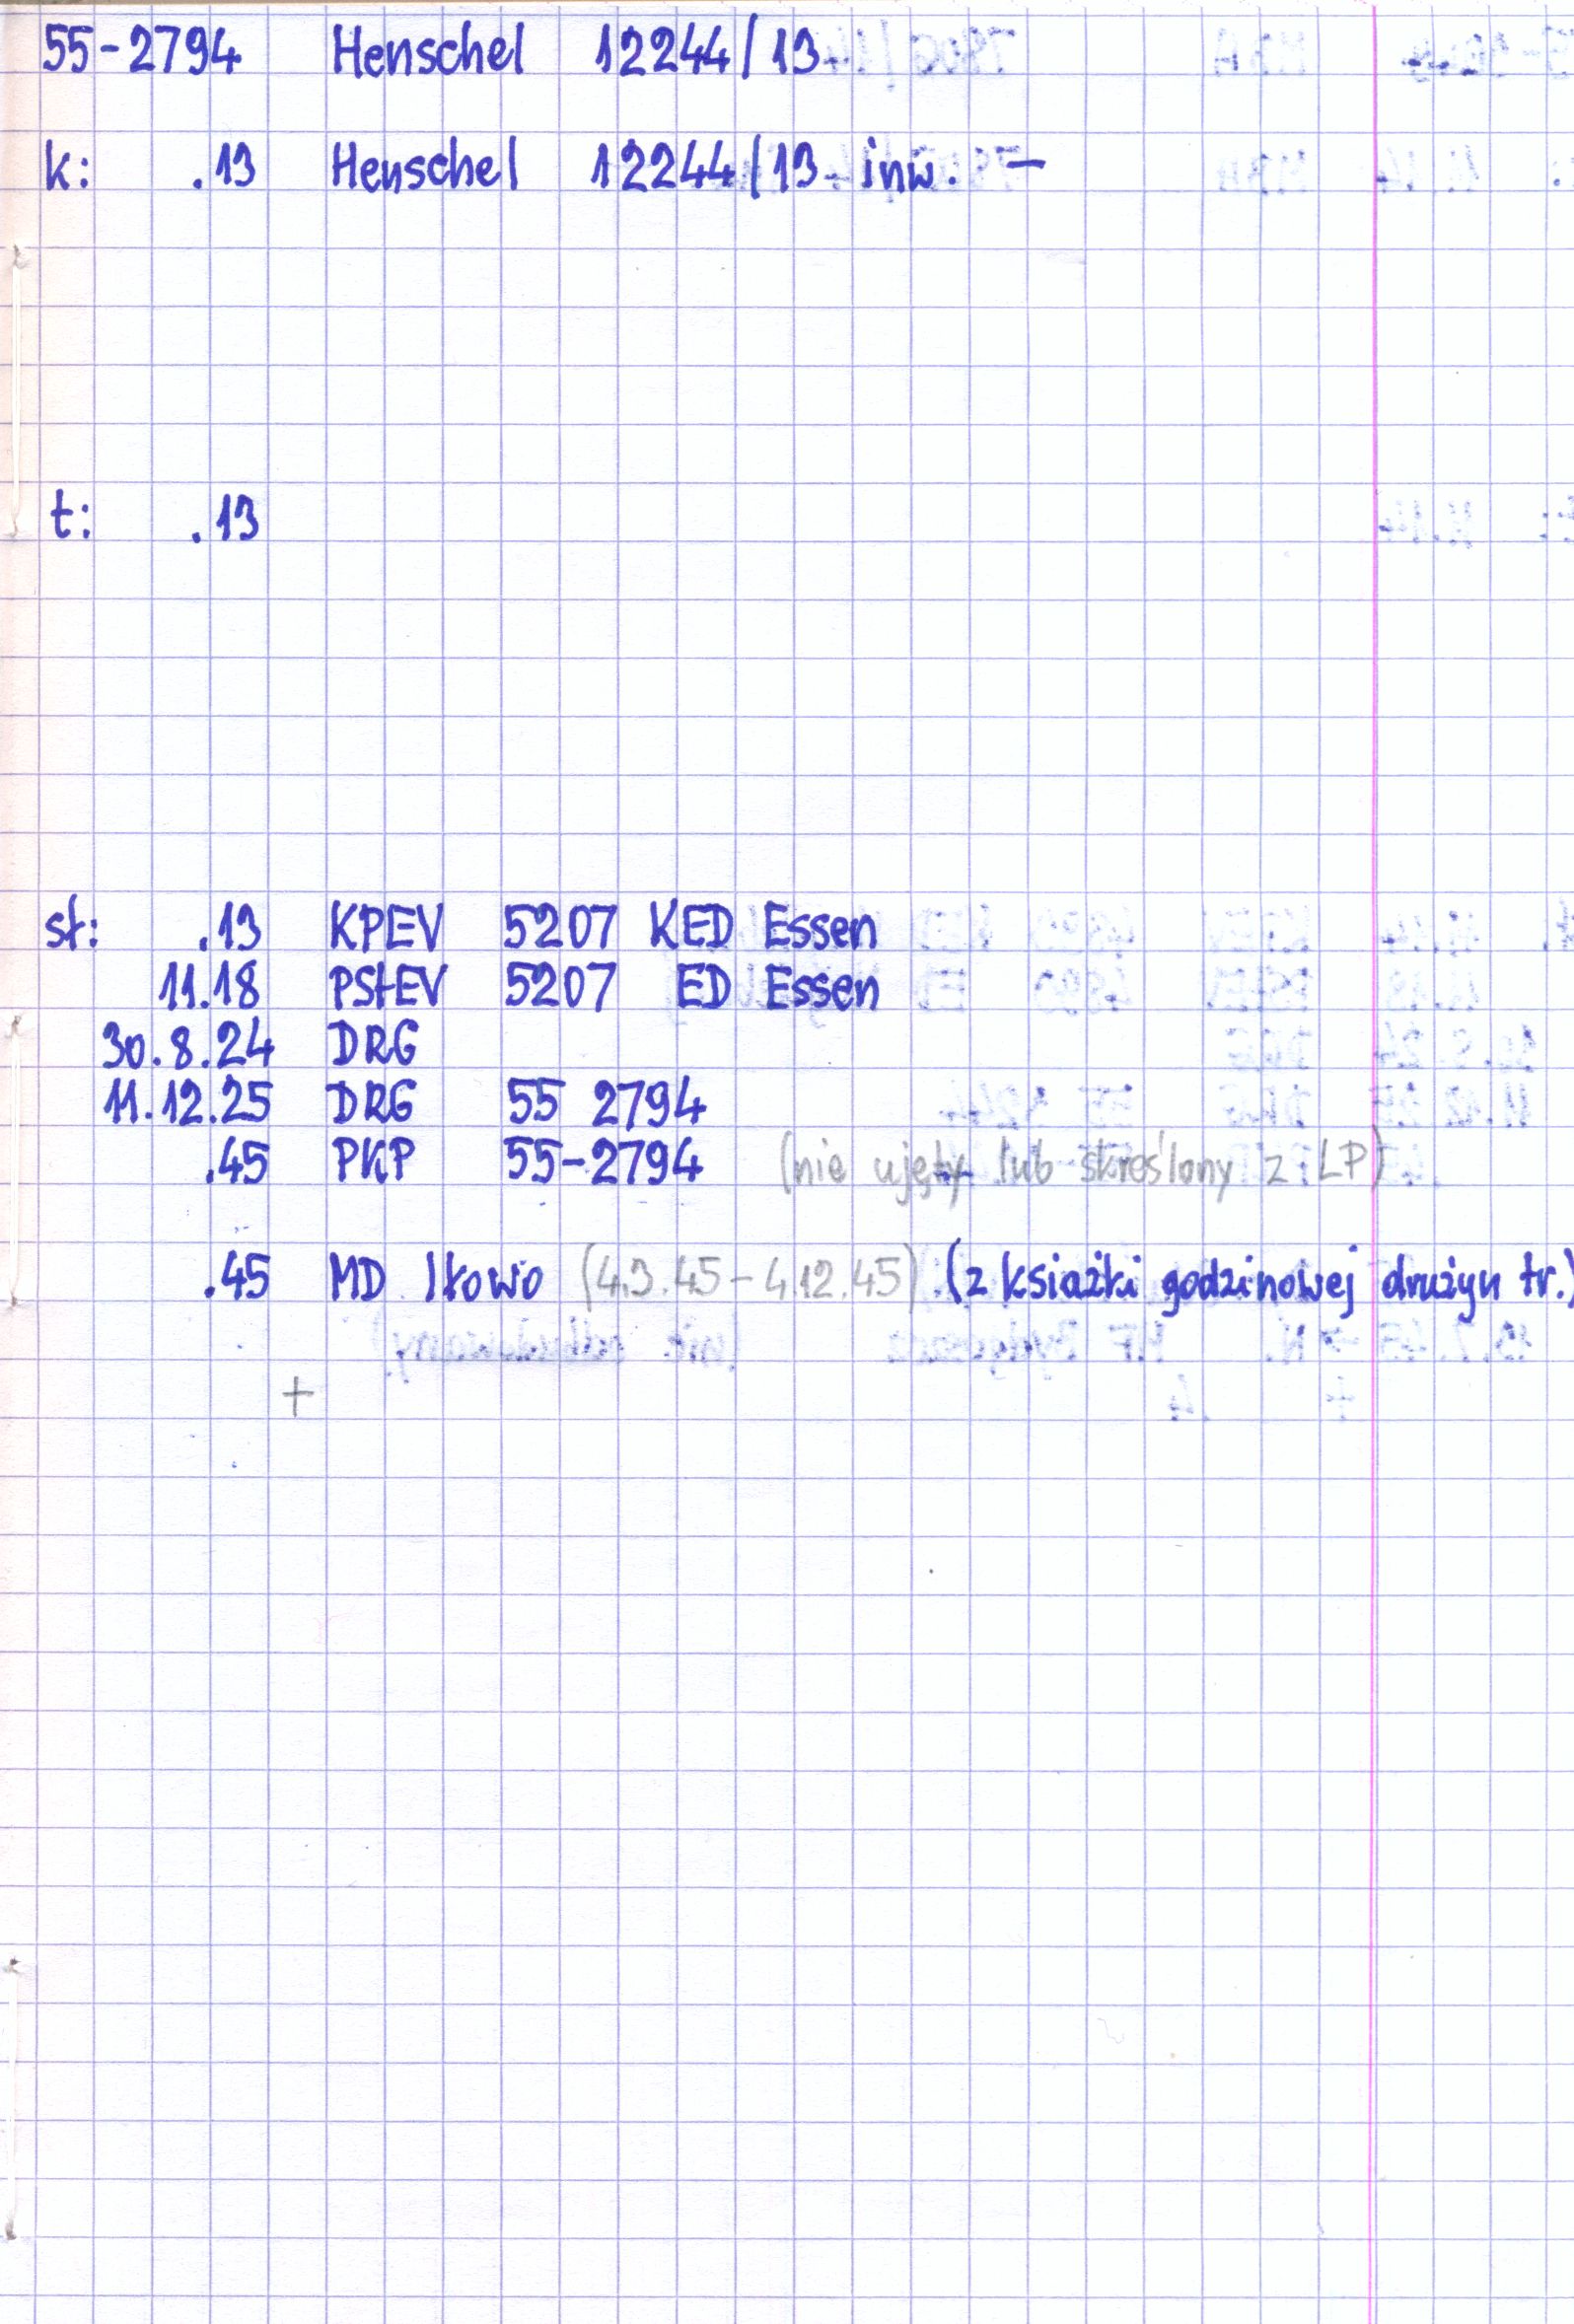 55-2794 Henschel 12244/13
k: .13 Henschel 12244/13 inw. —
t: .13
st: .13 KPEV 5207 KED Essen
11.18 PStEV 5207 ED Essen
30.8.24 DRG
11.12.25 DRG 55 2794
.45 PKP 55-2794 (nie ujęty lub skreślony z LP)
.45 MD Iłowo (4.3.45-4.12.45) (z książki godzinowej drużyn tr.)
+